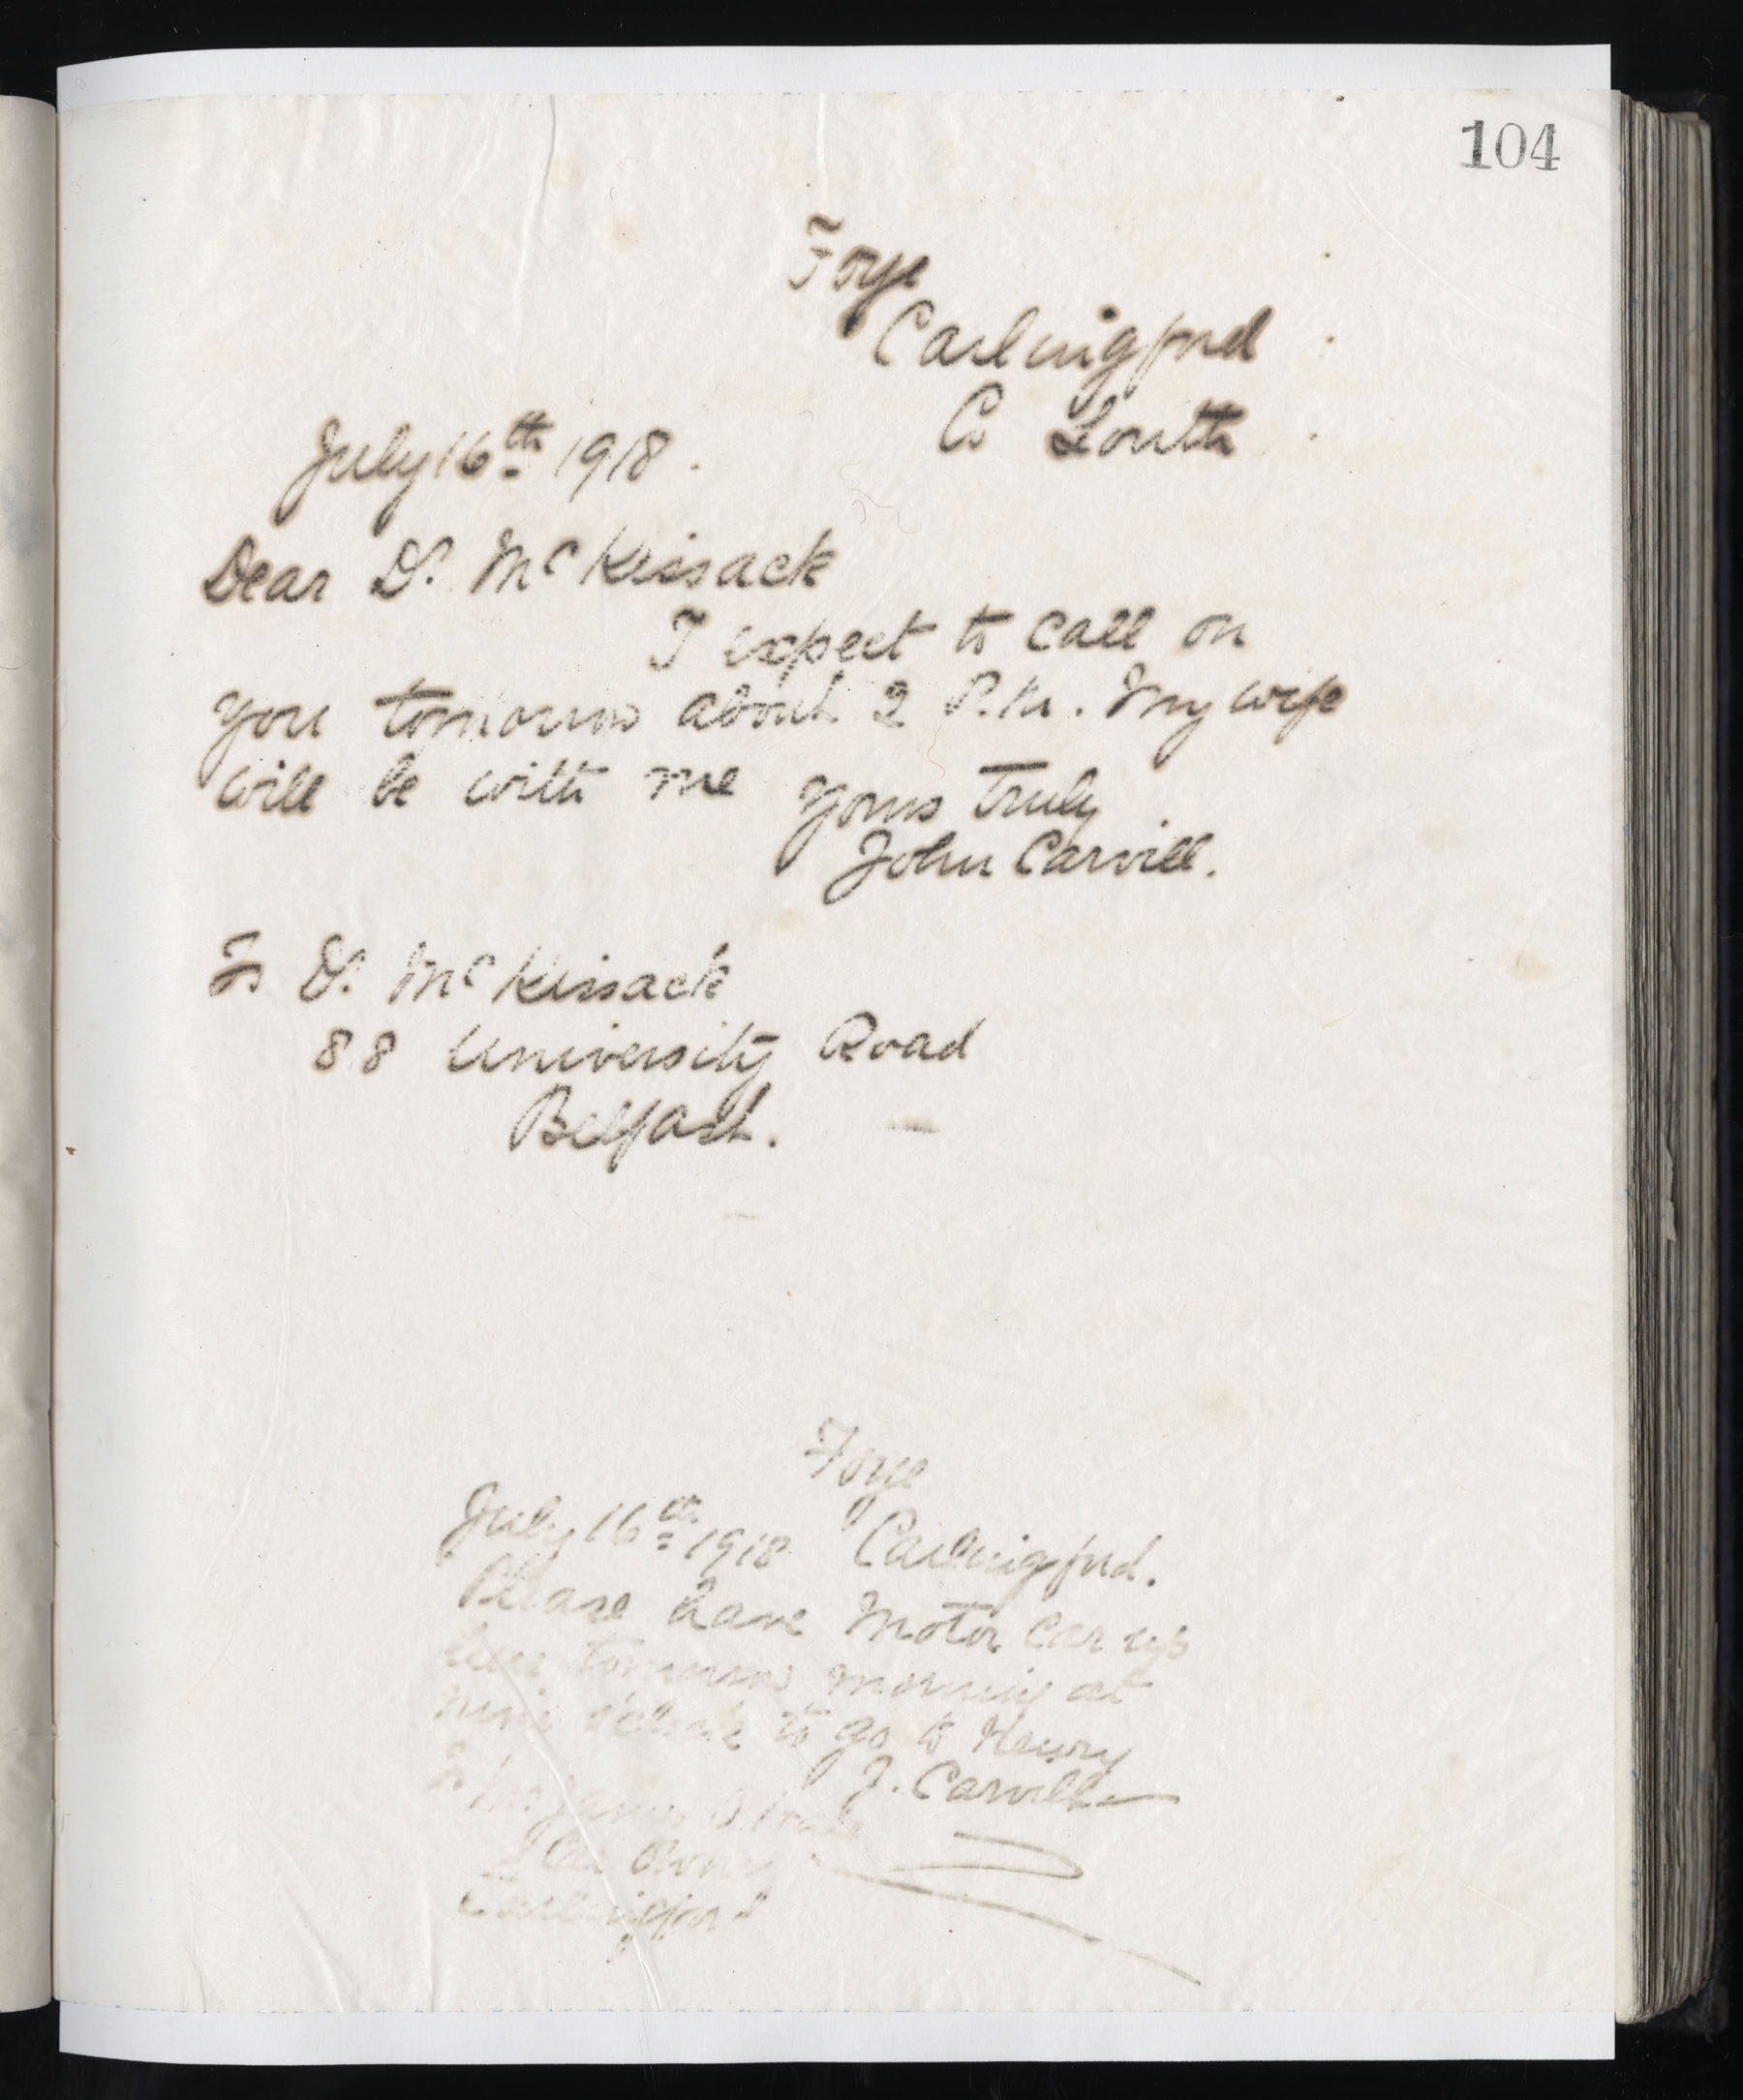 104
Foye
Carlingford
Co Louth
July 16th 1918.
Dear Dr. McKissack
I expect to call on
you tomorrow about 2 P.M. My wife
will be with me Yours Truly
John Carvill.
To Dr. McKissack
88 University Road
Belfast.
Foye
July 16th 1918 Carlingford.
Please have Motor Car up
here tomorrow morning at
nine o'clock to go to Newry
J. Carvill
To Mr James
Carlingford